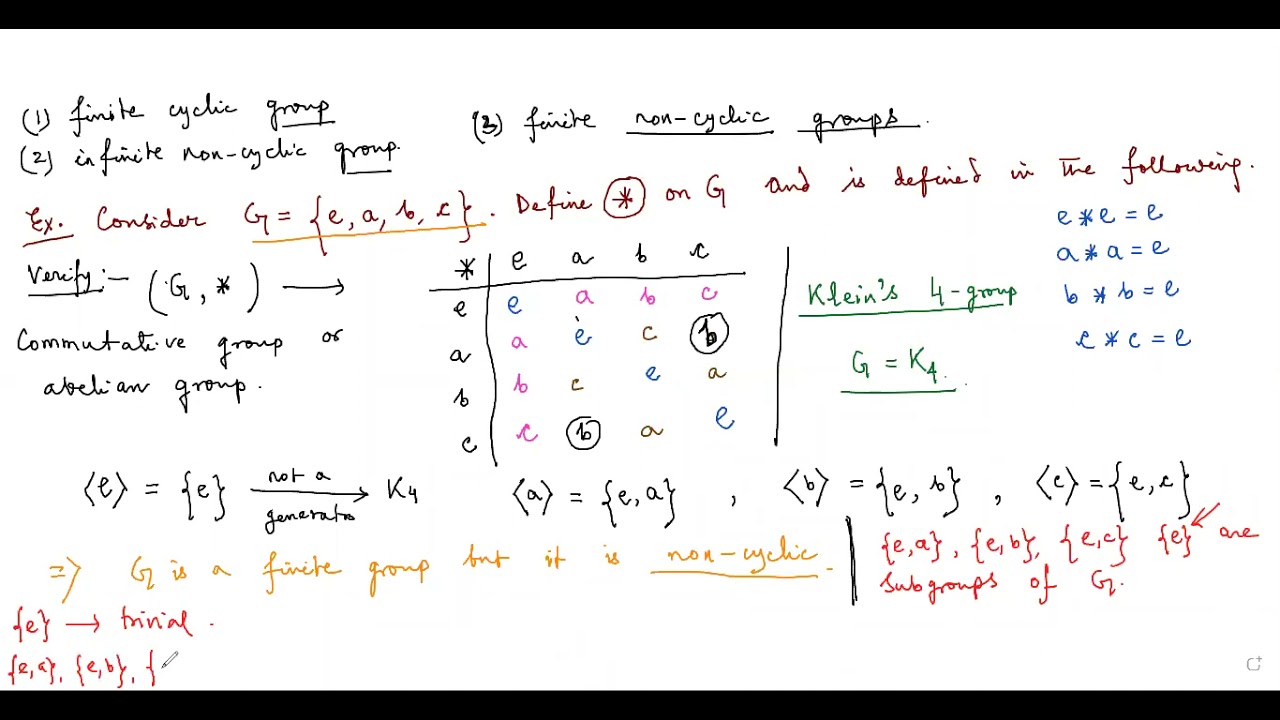 (1) finite cyclic group
(2) infinite non-cyclic group.
(3) finite non-cyclic groups.
Ex. Consider G = {e, a, b, c}. Define * on G and is defined in the following.
Verify:- (G, *) ⟶
Commutative group or
abelian group.
* | e a b c
e | e a b c
a | a e c b
b | b c e a
c | c b a e
Klein's 4-group
G = K₄.
e * e = e
a * a = e
b * b = e
c * c = e
⟨e⟩ = {e} not a generator ⟶ K₄ ⟨a⟩ = {e, a} , ⟨b⟩ = {e, b} , ⟨c⟩ = {e, c}
⇒ G is a finite group but it is non-cyclic.
{e,a}, {e,b}, {e,c} {e} are
subgroups of G.
{e} → trivial.
{e,a}, {e,b}, {